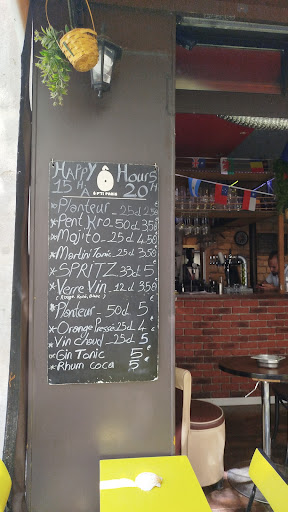 HAPPY Hours
15H A 20H
Ô
P'TI PARIS
* Planteur 25cl 2.5€
* Pent Kro 50cl 3.5€
* Mojito 25cl 4.5€
* Martini Tonic 25cl 3.5€
* SPRITZ 33cl 5€
* Verre Vin 12cl 3.5€
(Rouge, Rosé, Blanc)
* Planteur 50cl 5€
* Orange Pressée 25cl 4€
* Vin chaud 25cl 5€
Gin Tonic 5€
* Rhum coca 5€